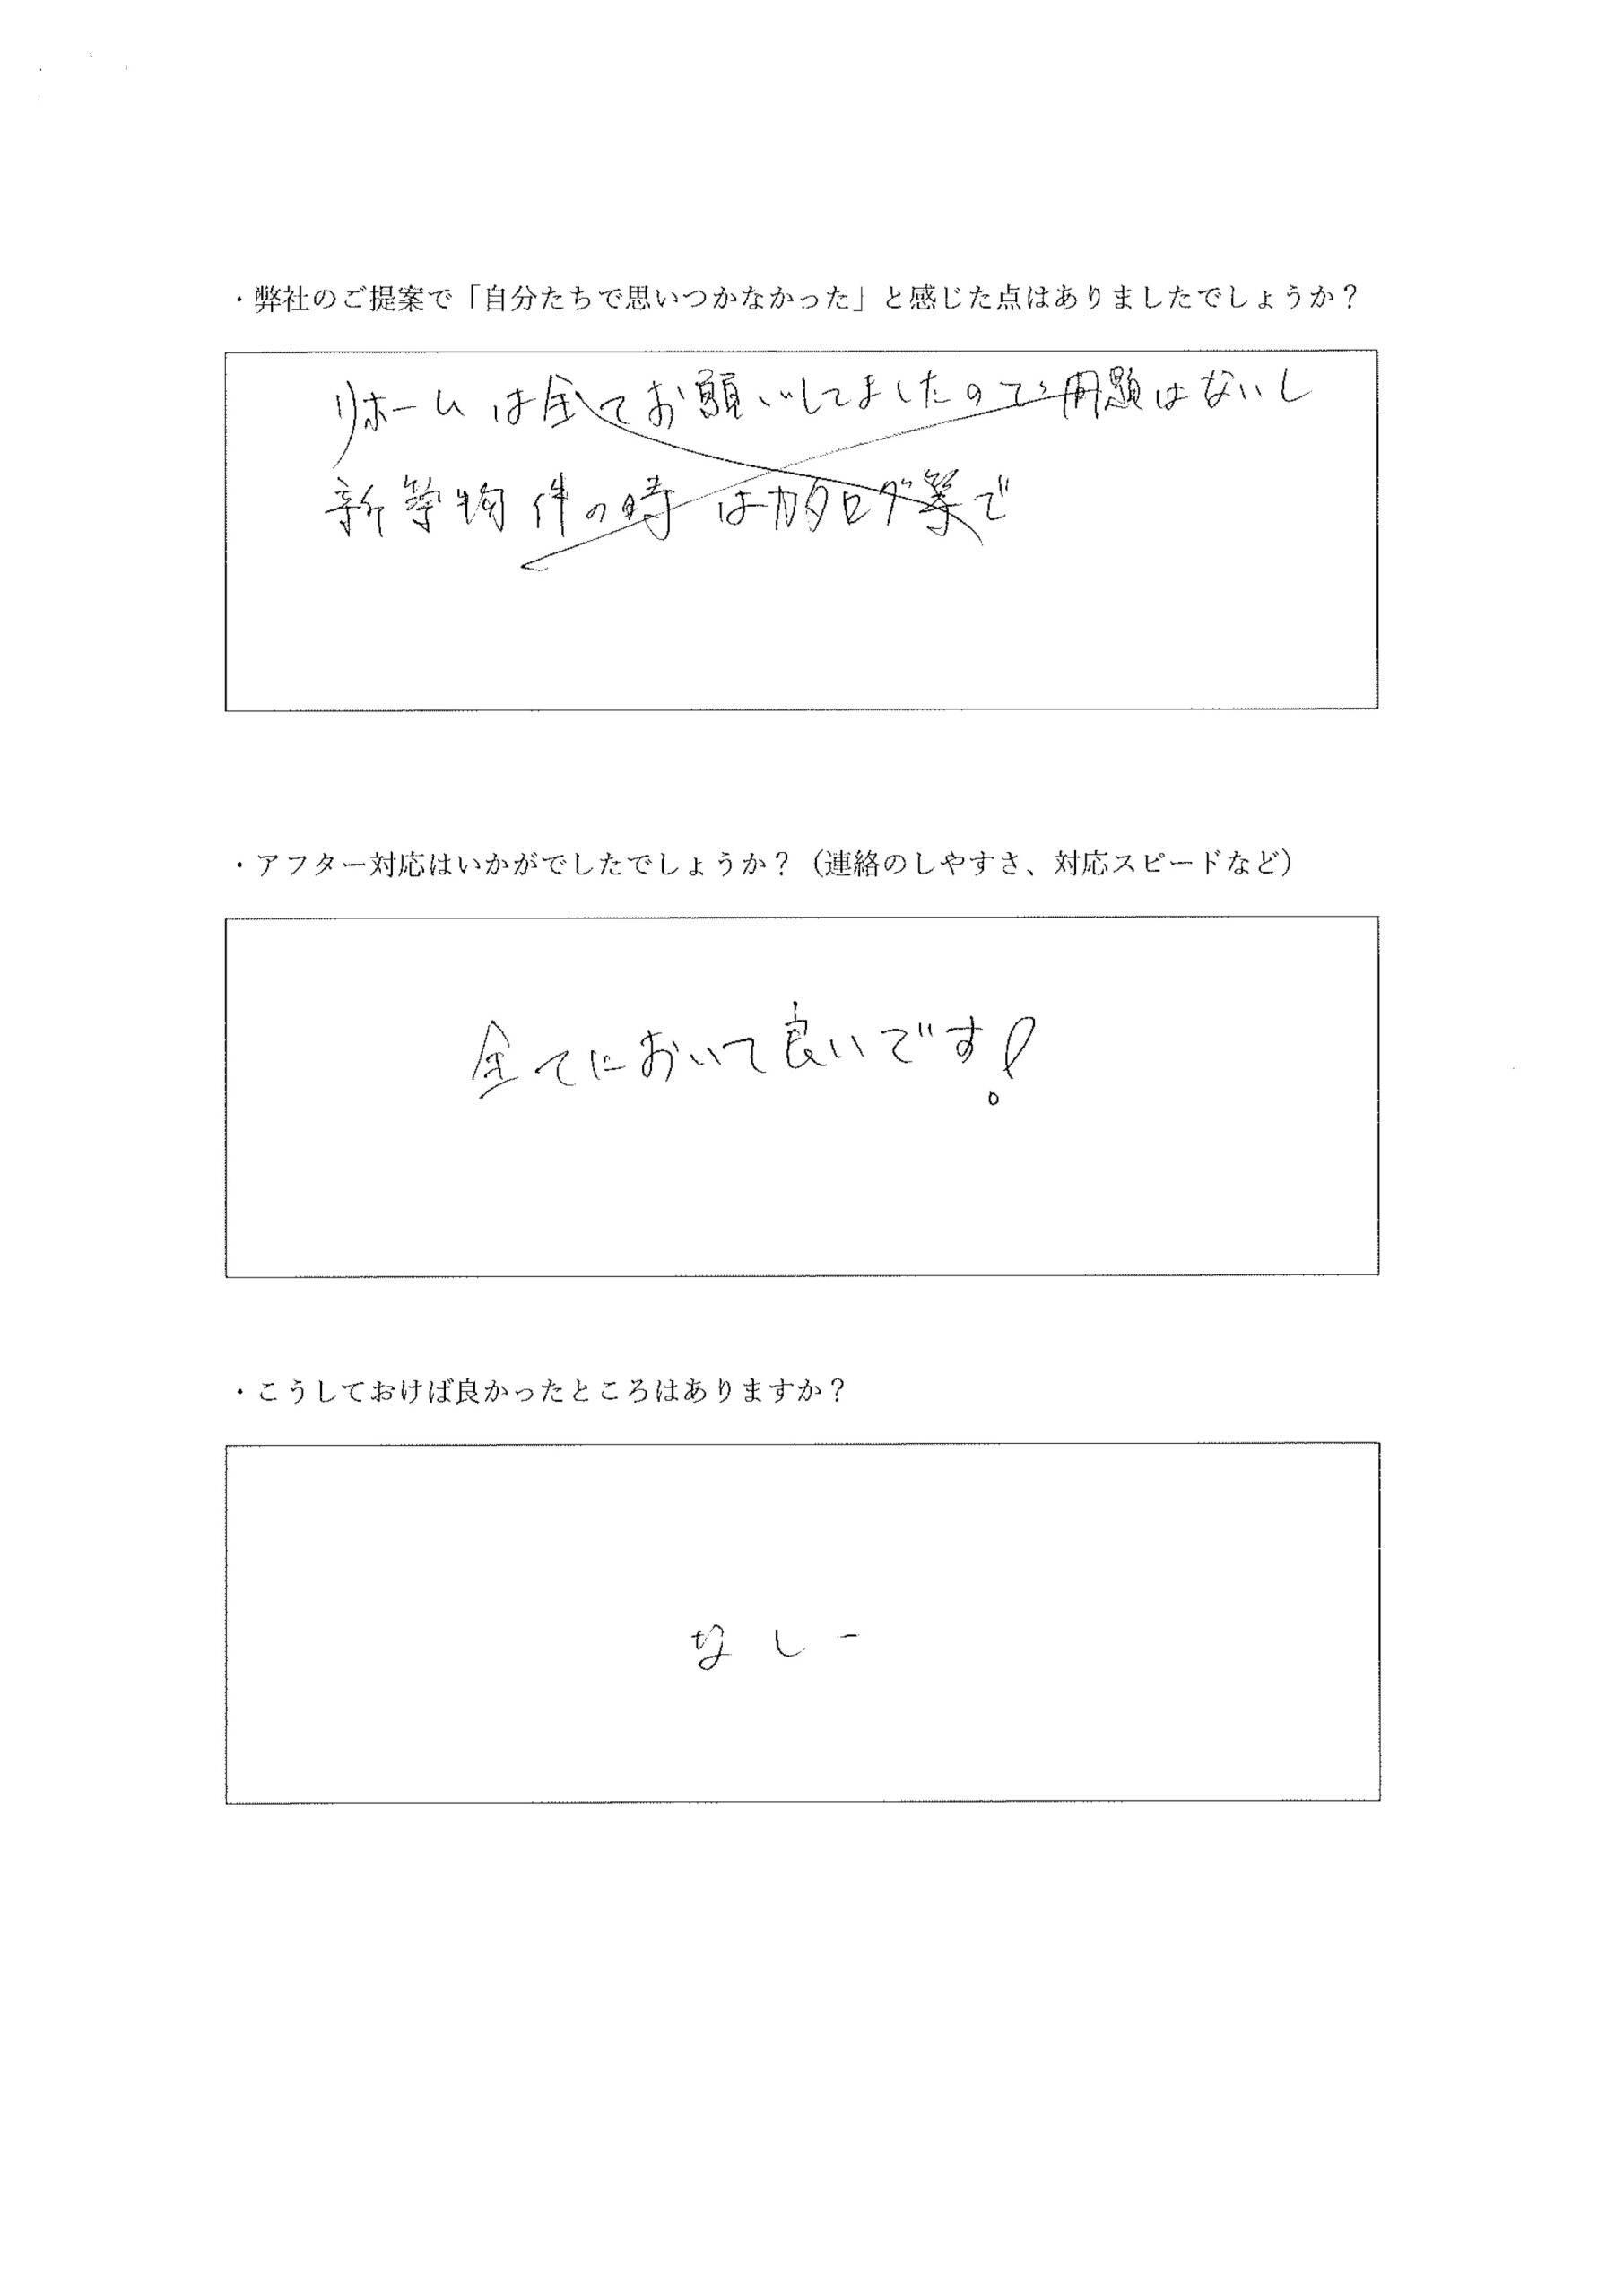 ・弊社のご提案で「自分たちで思いつかなかった」と感じた点はありましたでしょうか？
リホームは全てお願いしてましたので問題はないし
新築物件の時はカタログ等で
・アフター対応はいかがでしたでしょうか？（連絡のしやすさ、対応スピードなど）
全てにおいて良いです！
・こうしておけば良かったところはありますか？
なしー